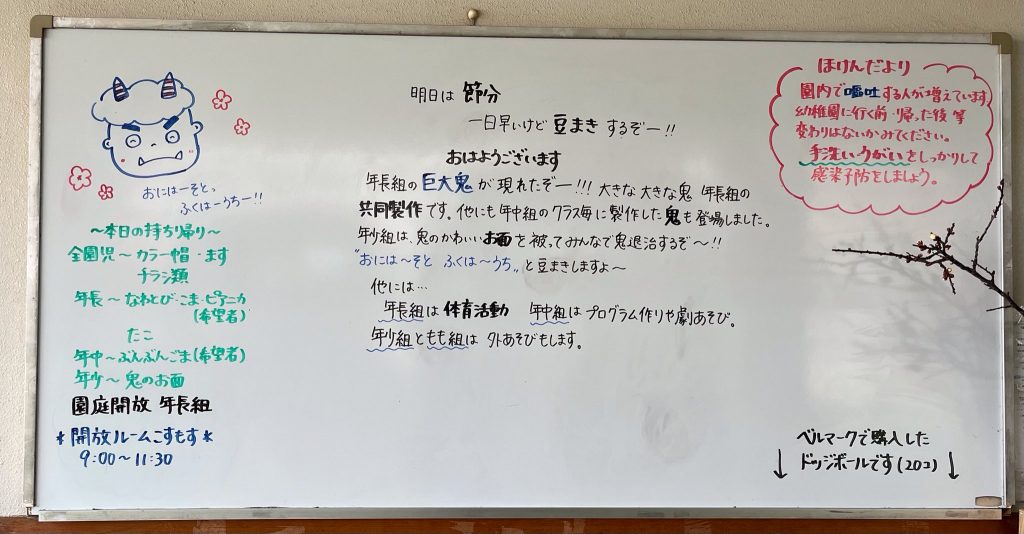 おにはーそと、
ふくはーうちー!!
～本日の持ち帰り～
全園児～カラー帽・ます
チラシ類
年長～なわとび・こま・ピアニカ
(希望者)
たこ
年中～ぶんぶんごま(希望者)
年少～鬼のお面
園庭開放 年長組
*開放ルームこすもす*
9:00～11:30
明日は 節分
一日早いけど 豆まき するぞー!!
おはようございます
年長組の 巨大鬼 が現れたぞー!!! 大きな大きな鬼 年長組の
共同製作です。他にも年中組のクラス毎に製作した鬼も登場しました。
年少組は、鬼のかわいいお面を被ってみんなで鬼退治するぞ～!!
“おには～そと ふくは～うち„ と豆まきしますよ～
他には…
年長組は体育活動 年中組はプログラム作りや劇あそび。
年少組ともも組は 外あそびもします。
ほけんだより
園内で嘔吐する人が増えています
幼稚園に行く前・帰った後 等
変わりはないかみてください。
手洗いうがいをしっかりして
感染予防をしましょう。
ベルマークで購入した
↓ ドッジボールです(20コ) ↓